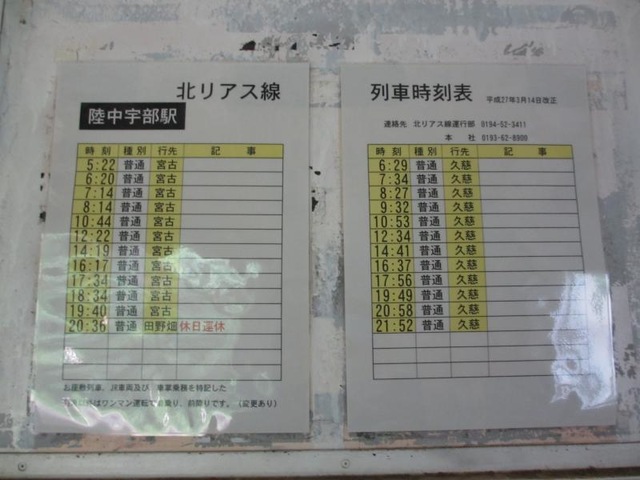 北リアス線
陸中宇部駅
時 刻 種 別 行先 記 事
5:22 普通 宮古
6:20 普通 宮古
7:14 普通 宮古
8:14 普通 宮古
10:44 普通 宮古
12:22 普通 宮古
14:19 普通 宮古
16:17 普通 宮古
17:34 普通 宮古
18:34 普通 宮古
19:40 普通 宮古
20:36 普通 田野畑 休日運休
お座敷列車、JR車両及び、車掌乗務を特記した
ワンマン運転で 乗り、前降りです。(変更あり)
列車時刻表 平成27年3月14日改正
連絡先 北リアス線運行部 0194-52-3411
本 社 0193-62-8900
時 刻 種 別 行先 記 事
6:29 普通 久慈
7:34 普通 久慈
8:27 普通 久慈
9:32 普通 久慈
10:53 普通 久慈
12:34 普通 久慈
14:41 普通 久慈
16:37 普通 久慈
17:56 普通 久慈
19:49 普通 久慈
20:58 普通 久慈
21:52 普通 久慈